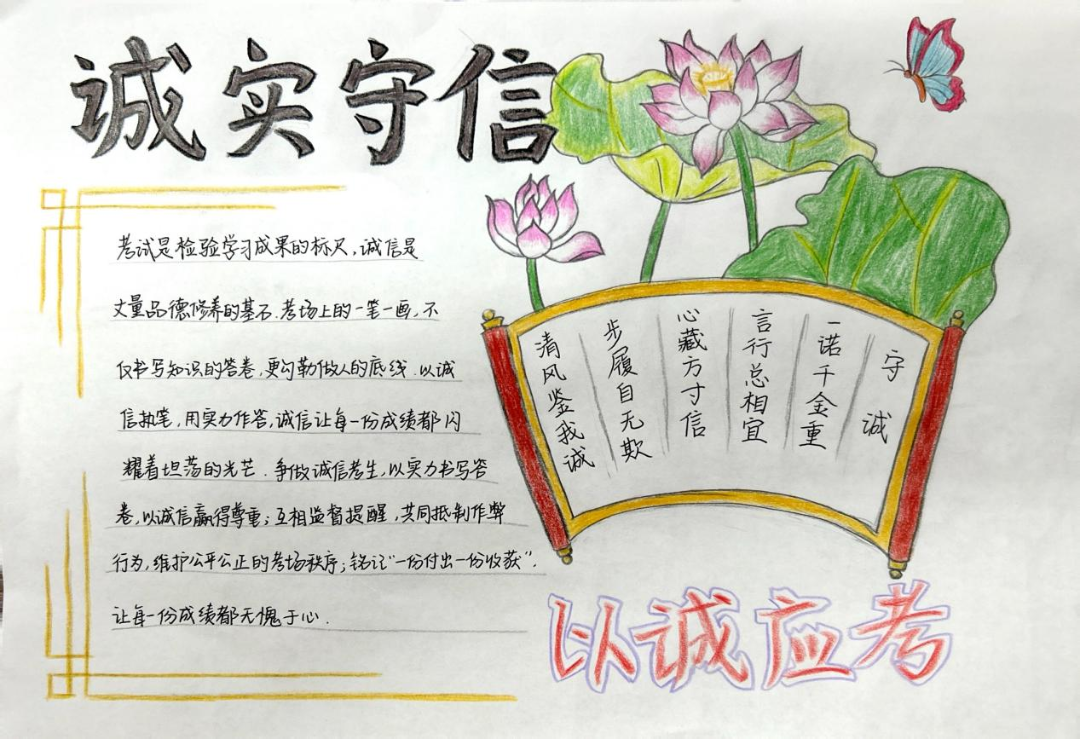 诚实守信
考试是检验学习成果的标尺,诚信是
丈量品德修养的基石.考场上的一笔一画,不
仅书写知识的答卷,更勾勒做人的底线.以诚
信执笔,用实力作答,诚信让每一份成绩都闪
耀着坦荡的光芒.争做诚信考生,以实力书写答
卷,以诚信赢得尊重;互相监督提醒,共同抵制作弊
行为,维护公平公正的考场秩序;铭记“一份付出一份收获”.
让每一份成绩都无愧于心.
守诚
一诺千金重
言行总相宜
心藏方寸信
步履自无欺
清风鉴我诚
以诚应考